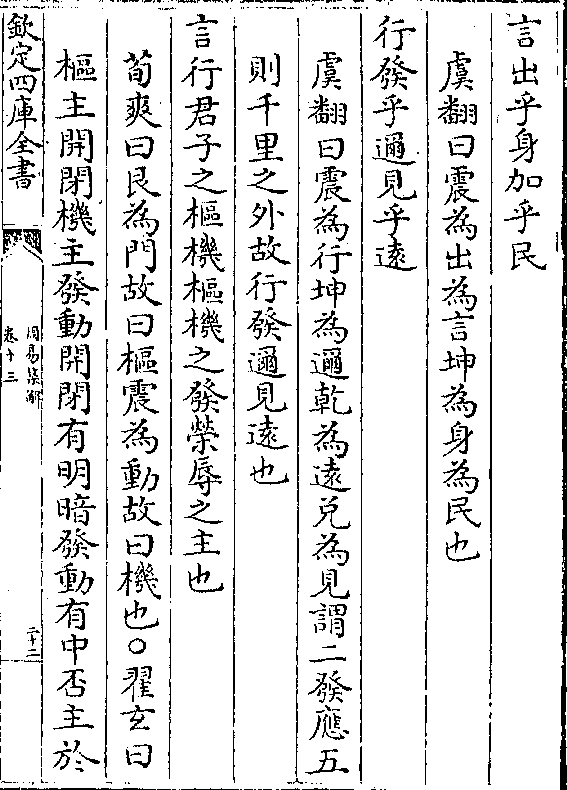 言出乎身加乎民
虞翻曰震為出為言坤為身為民也
行發乎邇見乎遠
虞翻曰震為行坤為邇乾為遠兑為見謂二發應五
則千里之外故行發邇見遠也
言行君子之樞機樞機之發榮辱之主也
荀爽曰艮為門故曰樞震為動故曰機也○翟玄曰
樞主開閉機主發動開閉有明暗發動有中否主於
欽定四庫全書
周易集解
卷十三
二十二